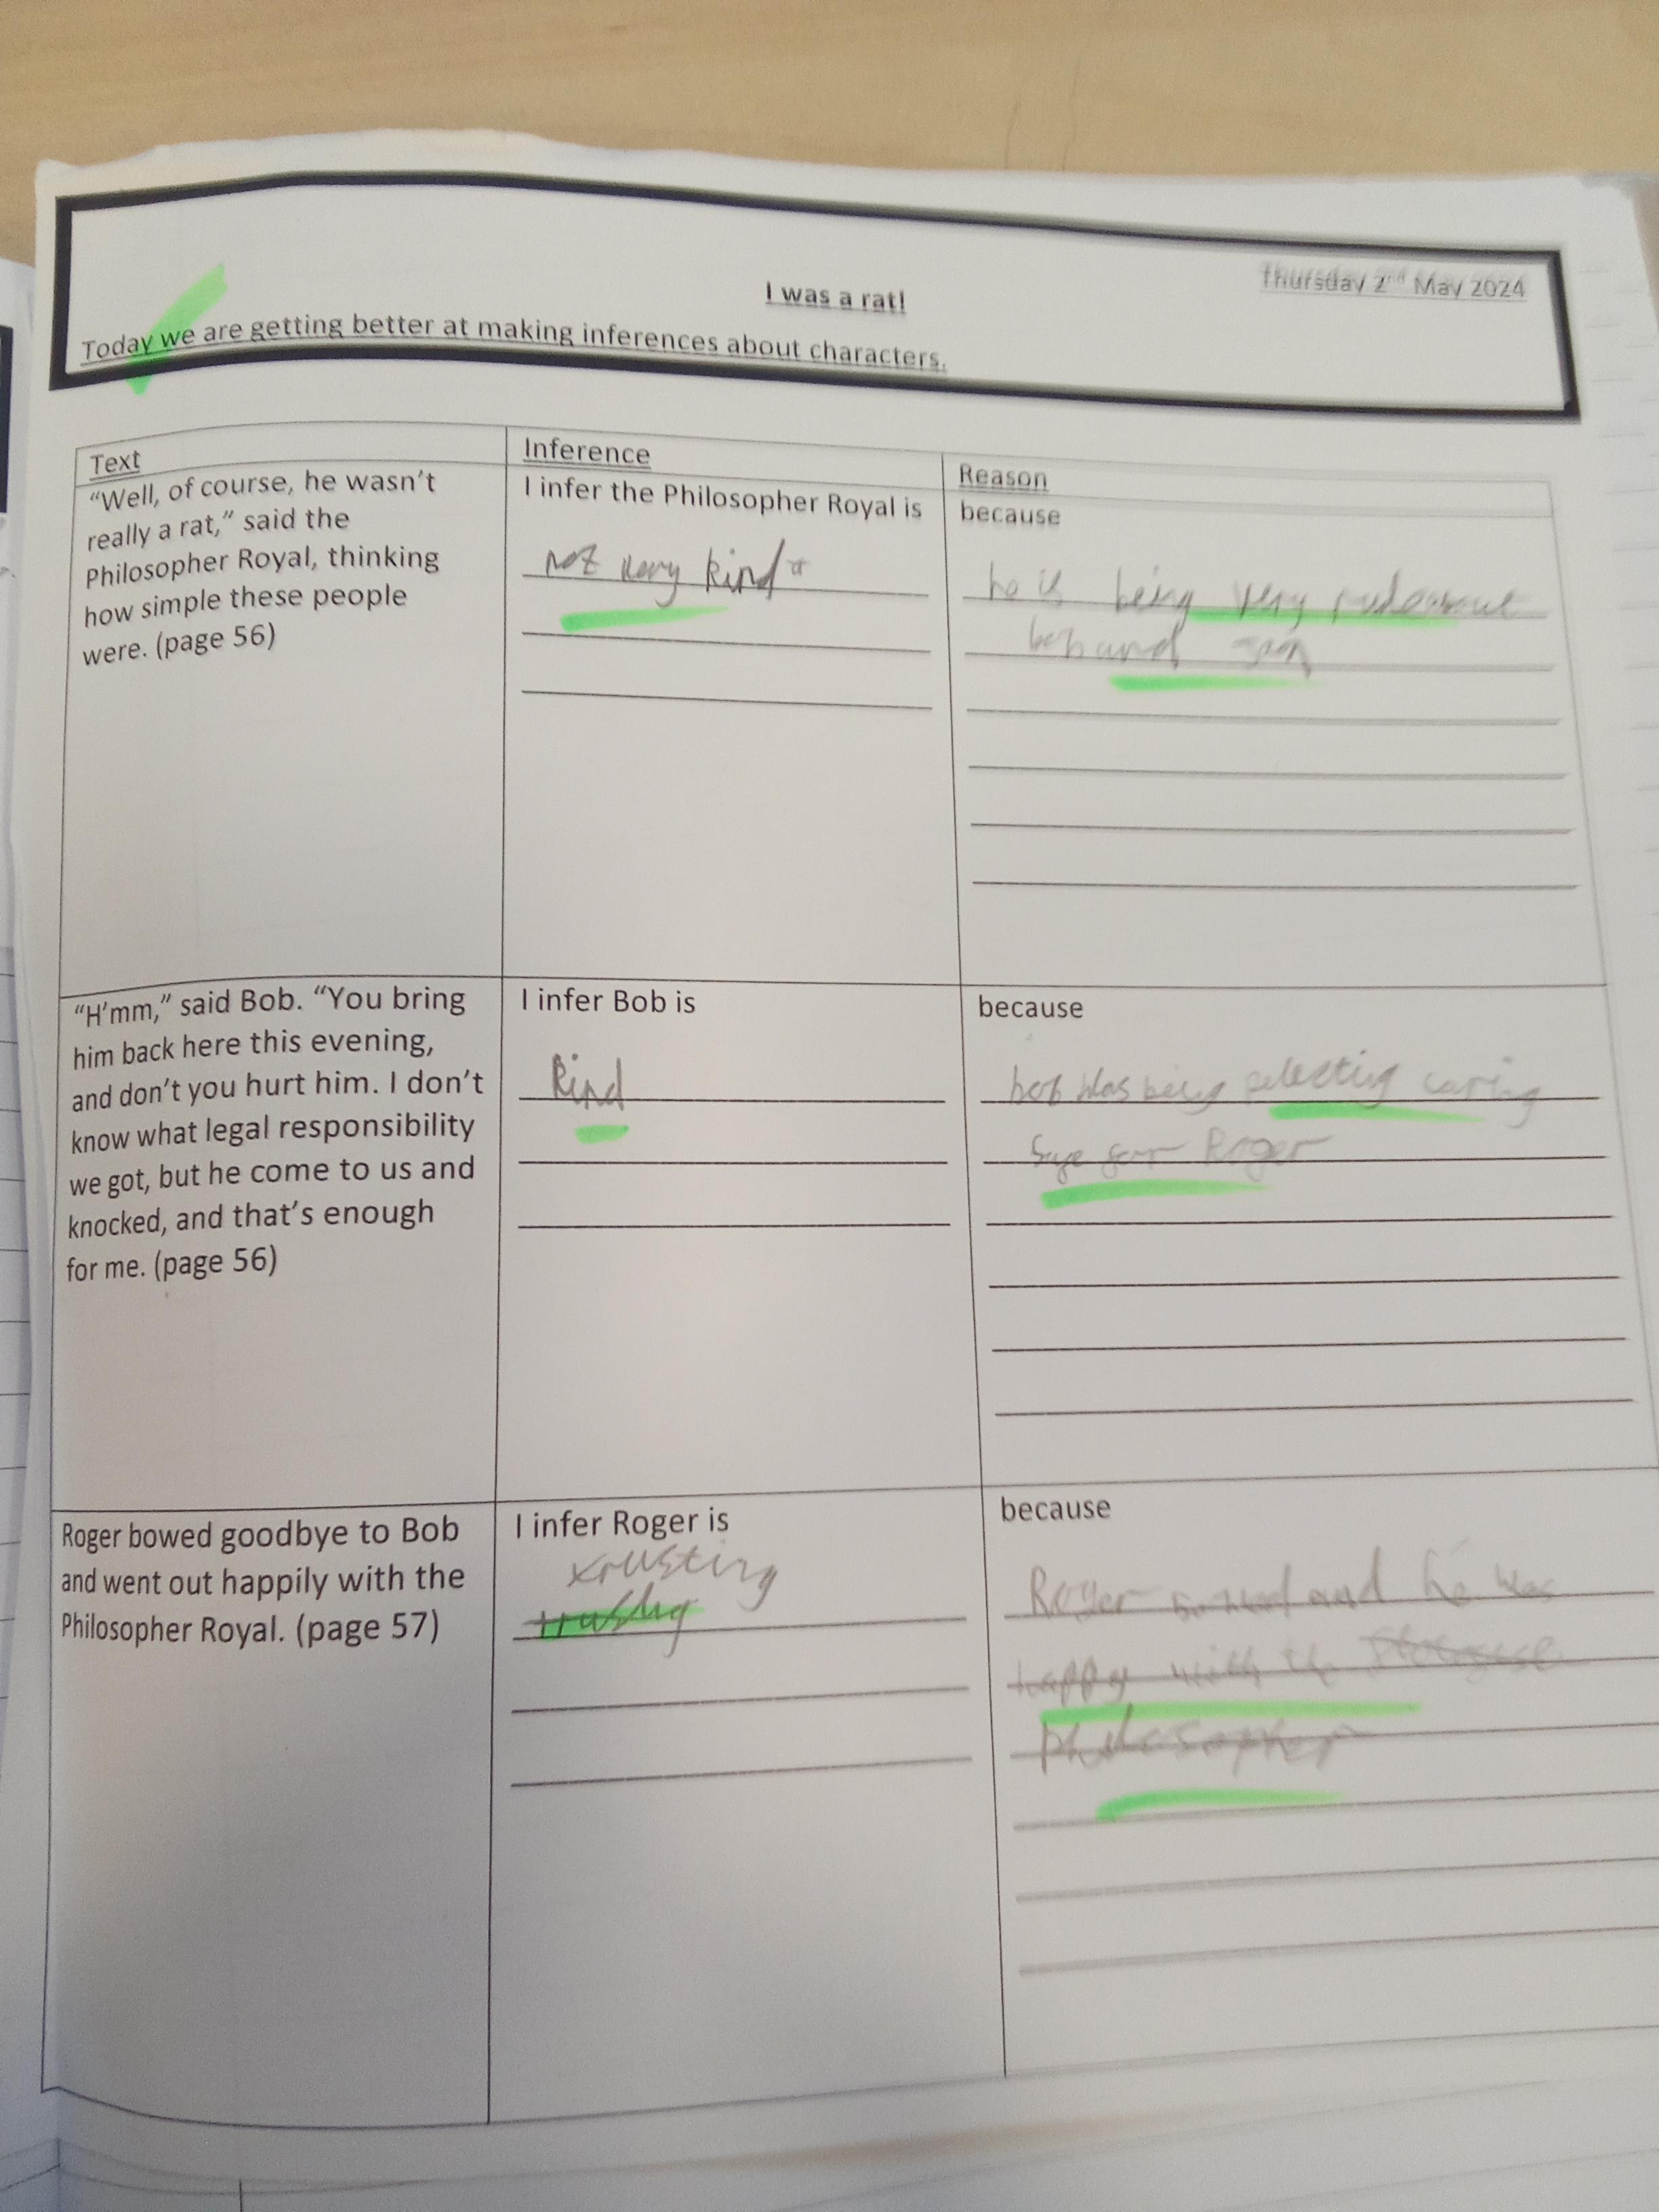 Thursday 2nd May 2024
I was a rat!
Today we are getting better at making inferences about characters.
Text
Inference
Reason
"Well, of course, he wasn't
really a rat," said the
Philosopher Royal, thinking
how simple these people
were. (page 56)
I infer the Philosopher Royal is
not very kind
because
he is being very
"H'mm," said Bob. "You bring
him back here this evening,
and don't you hurt him. I don't
know what legal responsibility
we got, but he come to us and
knocked, and that's enough
for me. (page 56)
I infer Bob is
kind
because
bob was being caring
Roger
Roger bowed goodbye to Bob
and went out happily with the
Philosopher Royal. (page 57)
I infer Roger is
trusting
because
Roger and he was
happy with the
philosopher